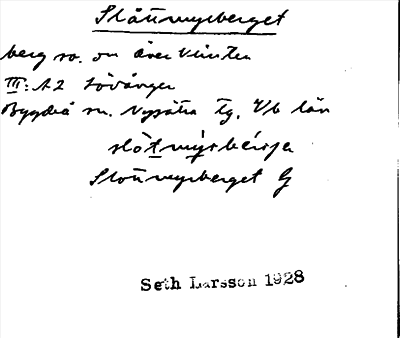 Slåttmyrberget
berg so. om över Klinten
III: A2 Lövånger
Bygdeå sn. Nysätra tg. V/b län
slòtmyrbérje
Slottmyrberget G
Seth Larsson 1928